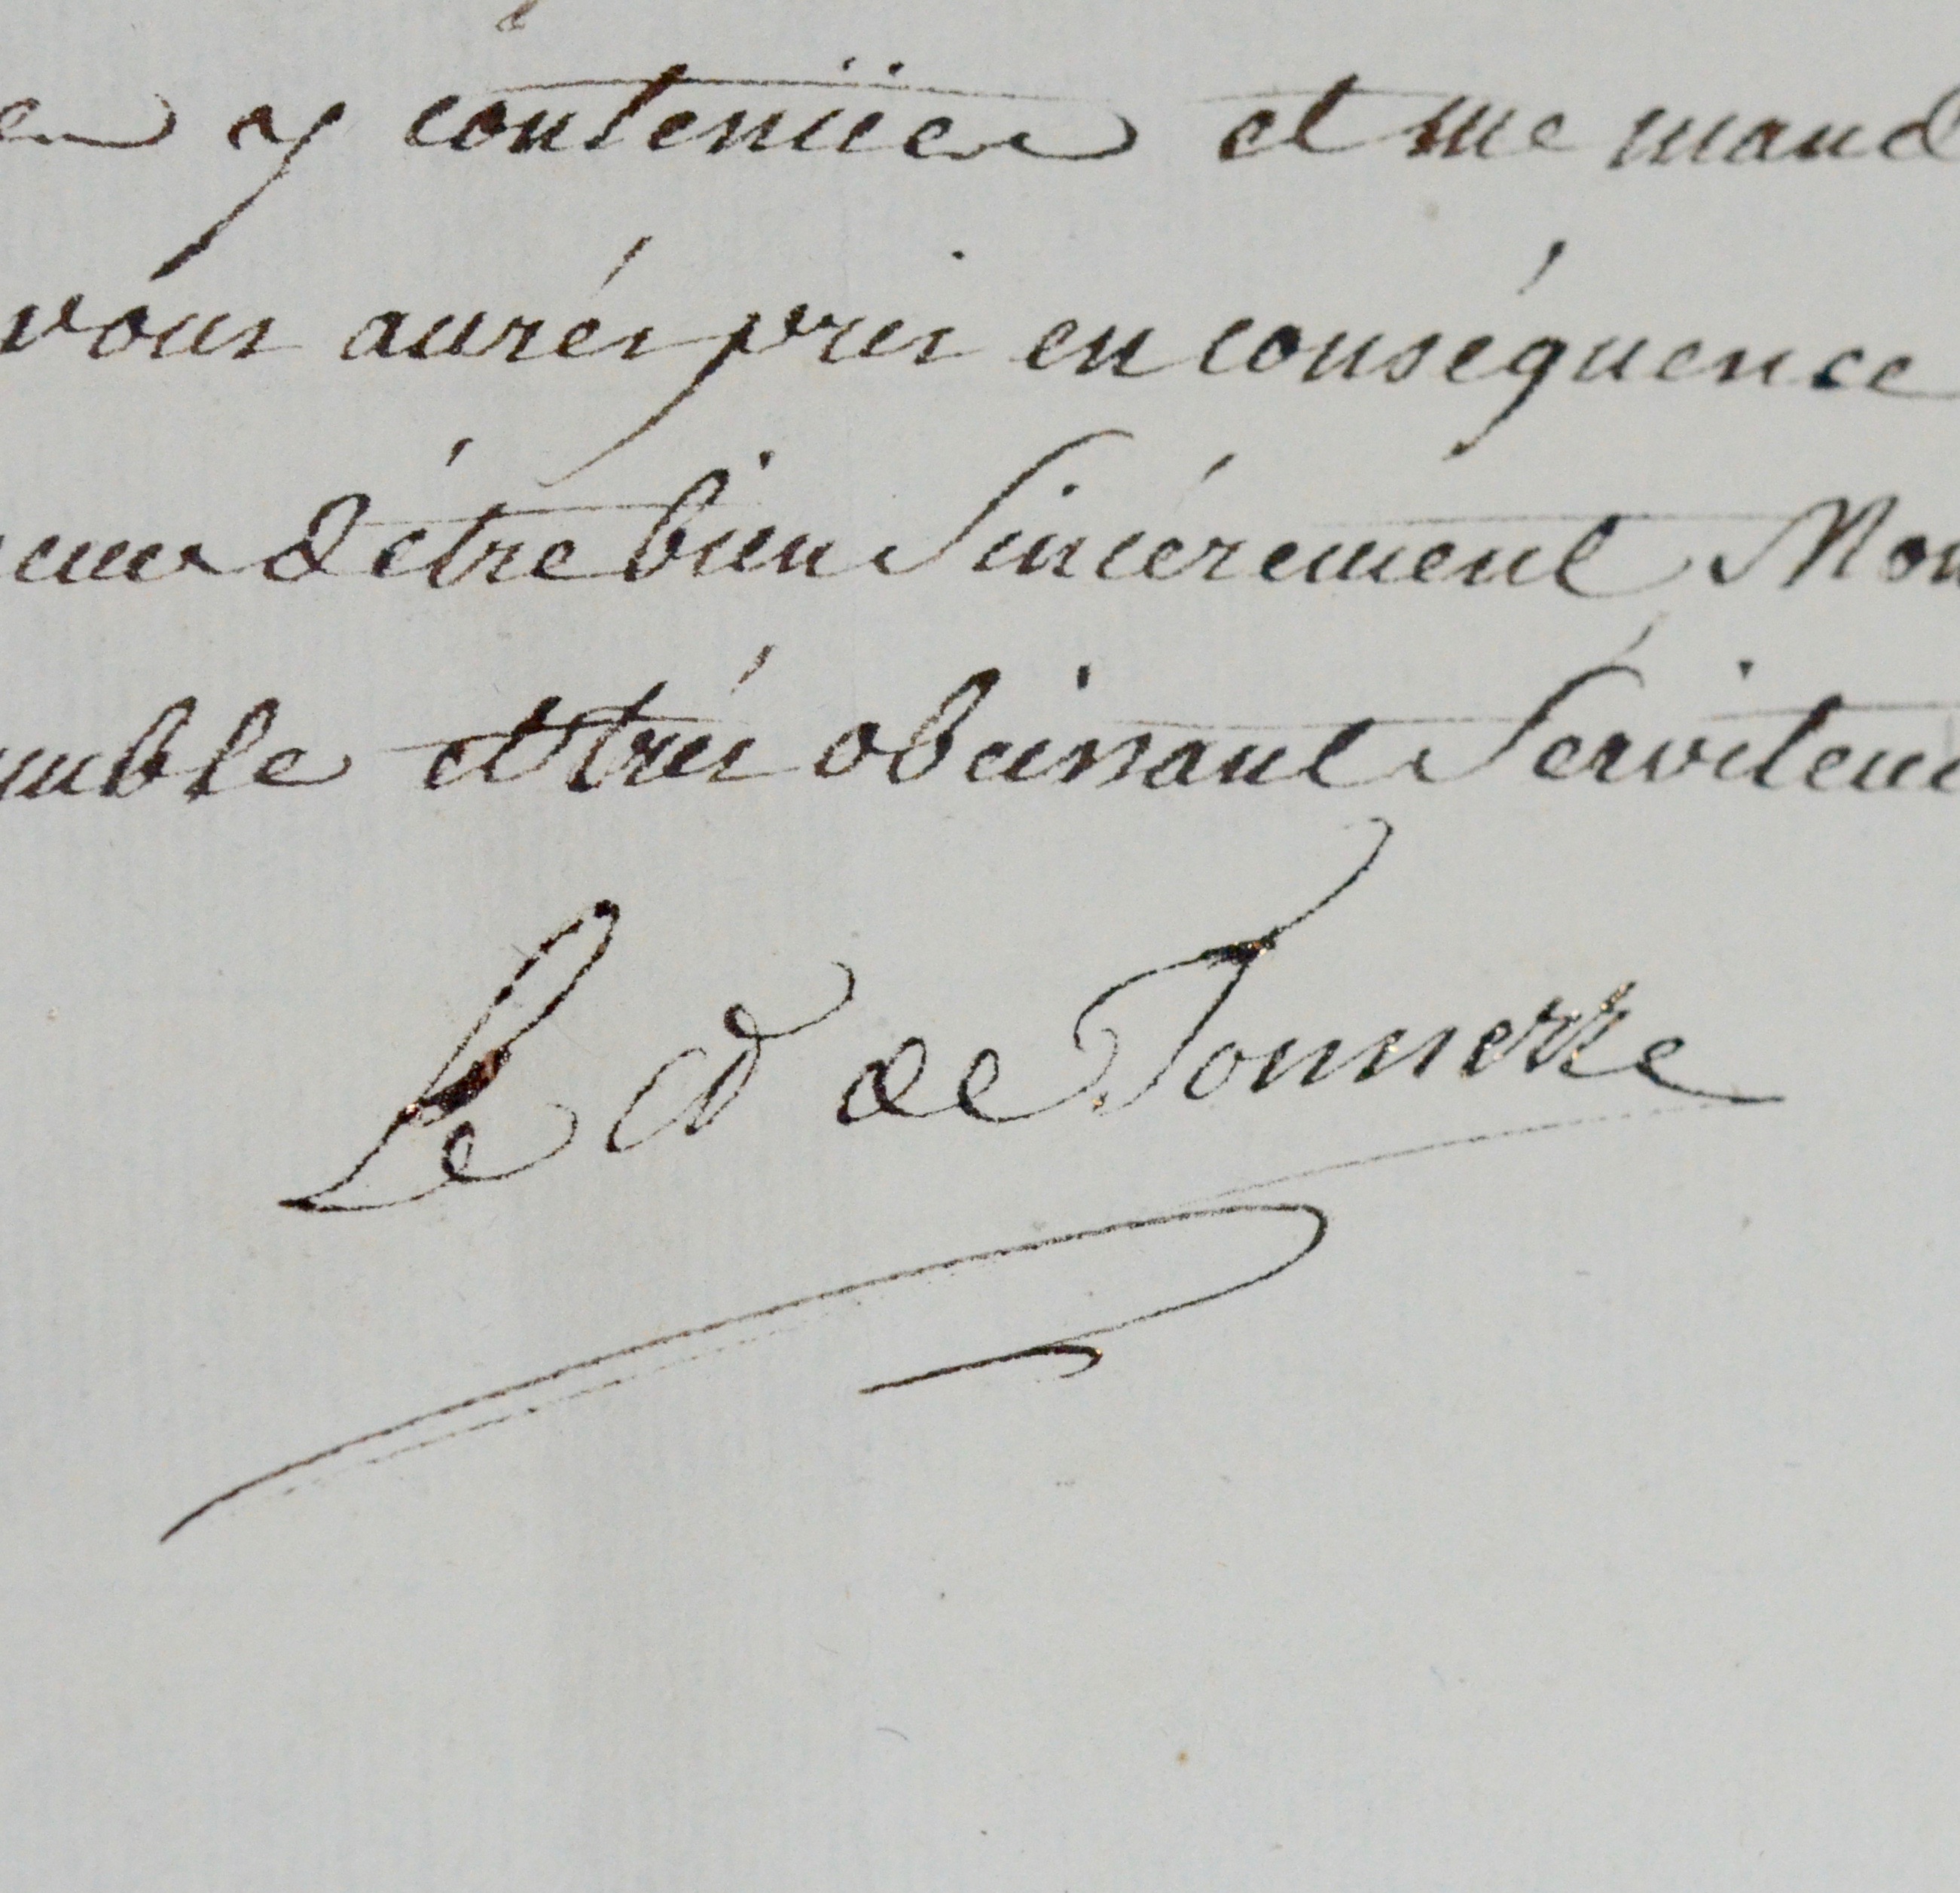 y contenües et me mand
vous aurés pris en conséquence
d'étre bien sincérement Mon
umble et trés obeissant serviteur
Le cd de Tonnerre